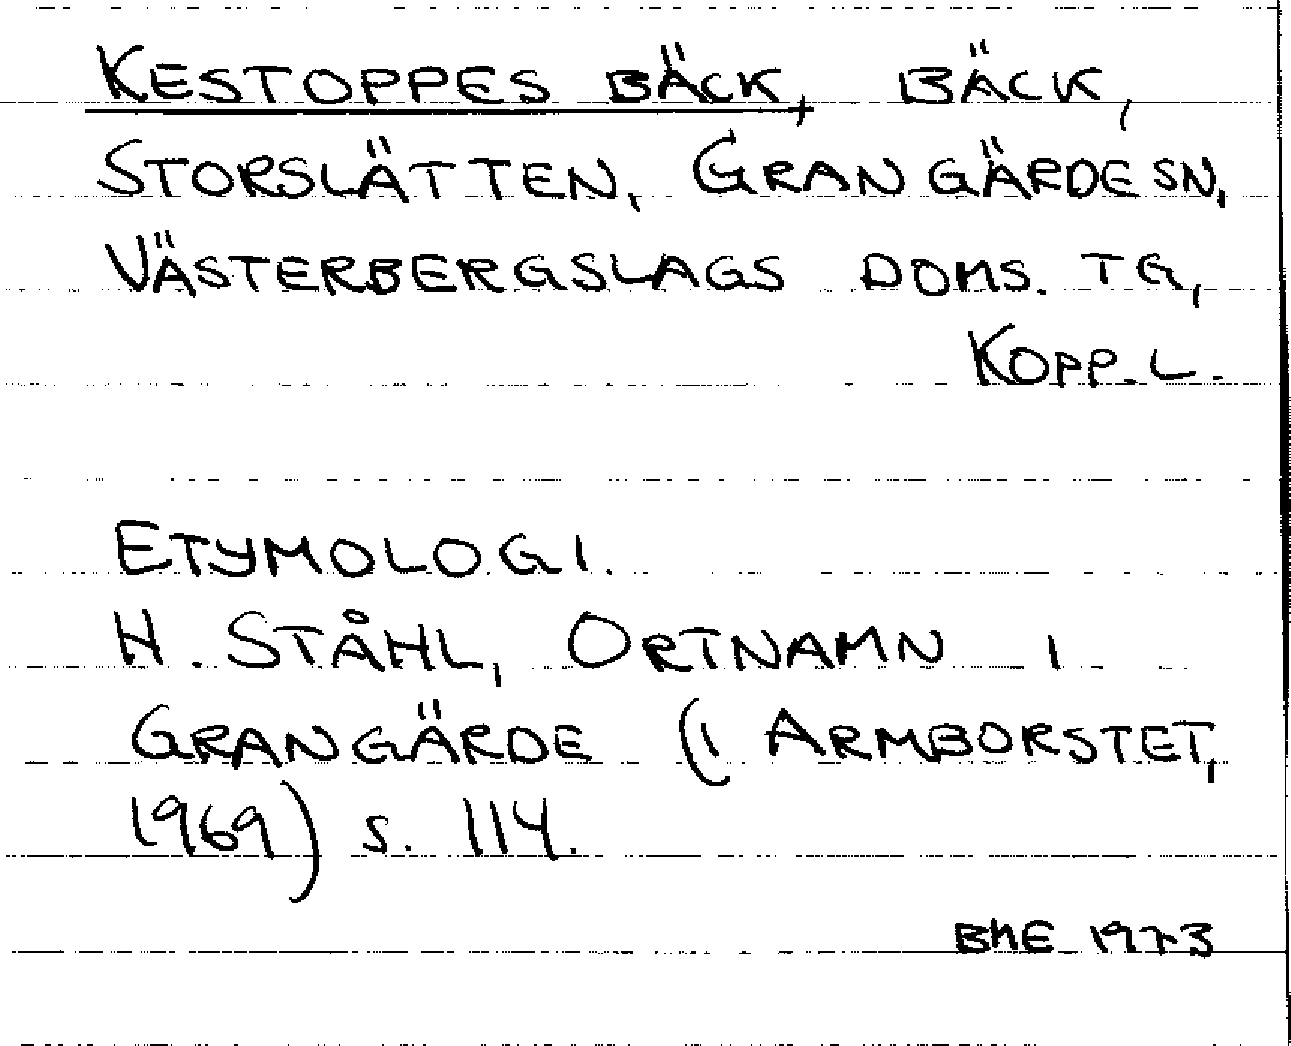 KESTOPPES BÄCK, BÄCK,
STORSLÄTTEN, GRANGÄRDE SN,
VÄSTERBERGSLAGS DOMS. TG,
KOPP. L.
ETYMOLOGI.
H. STÅHL, ORTNAMN I
GRANGÄRDE (I ARMBORSTET,
1969) S. 114.
BHE 1973